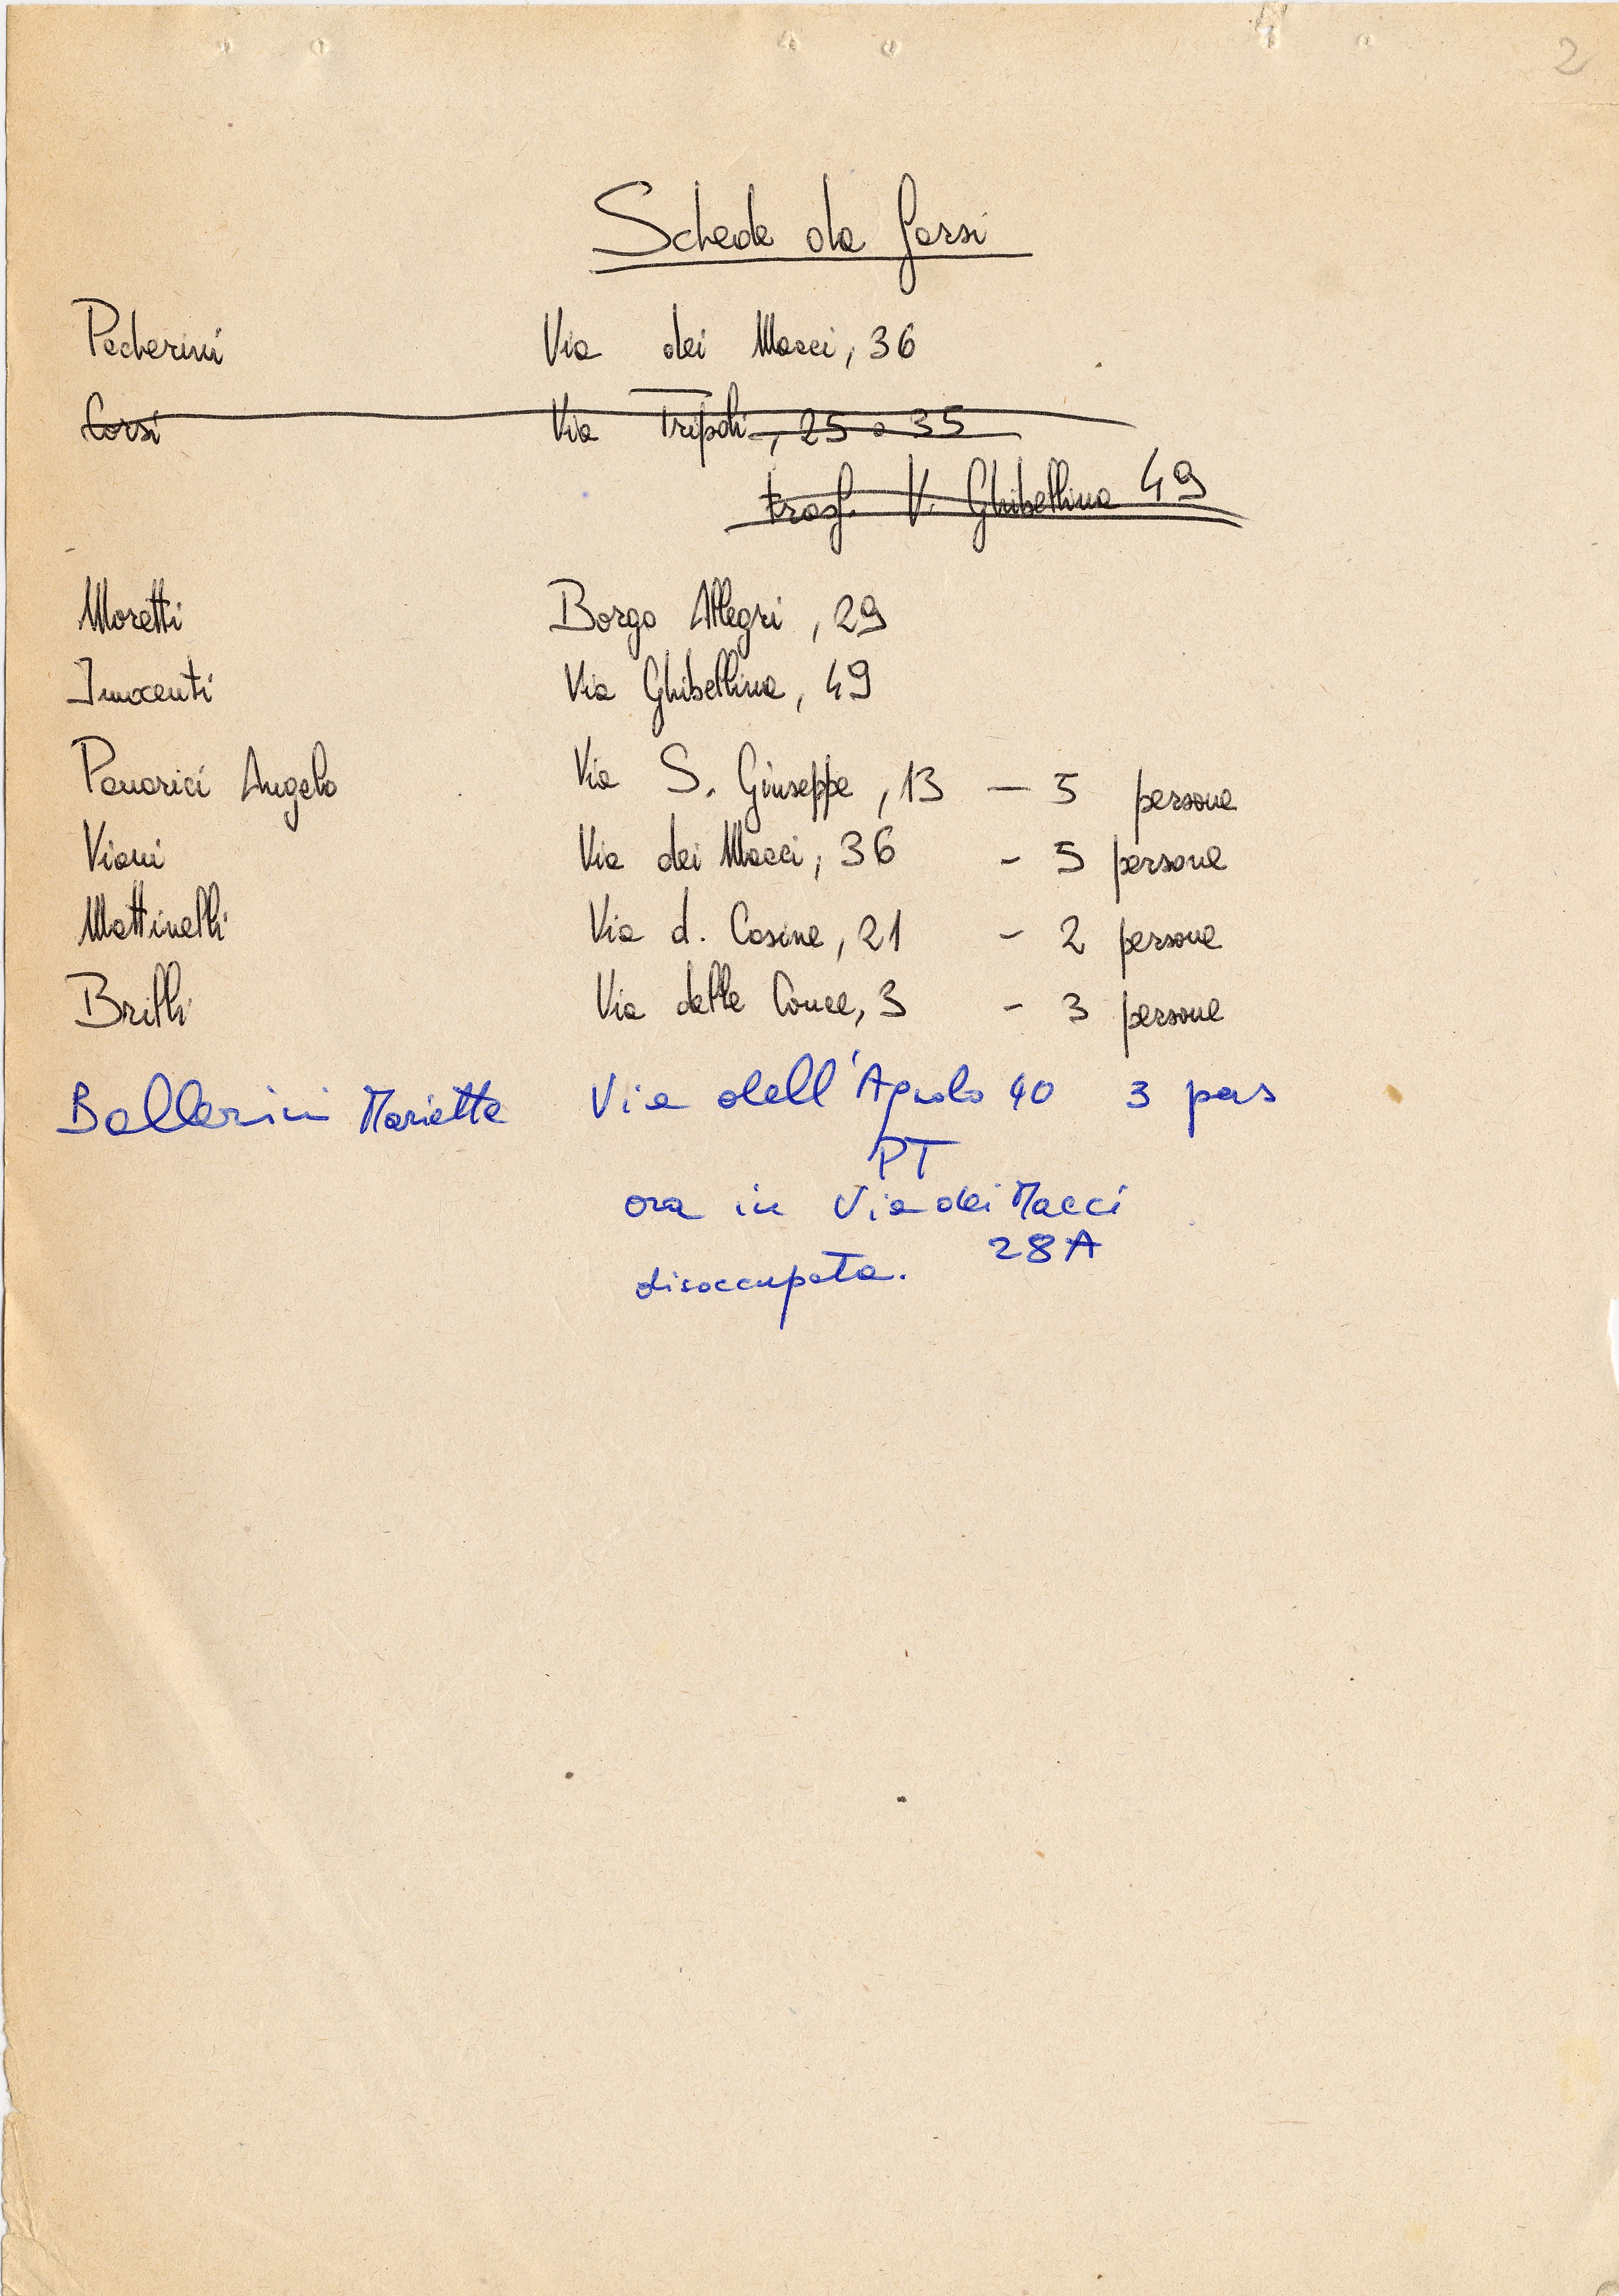 2
Schede da farsi
Pecherini Via dei Macci, 36
Corsi Via Tripoli, 25 o 35
trasf. V. Ghibellina 49
Moretti Borgo Allegri, 29
Innocenti Via Ghibellina, 49
Panarici Angelo Via S. Giuseppe, 13 - 5 persone
Viani Via dei Macci, 36 - 5 persone
Mattinelli Via d. Casine, 21 - 2 persone
Brilli Via delle Conce, 3 - 3 persone
Ballerini Marietta Via dell'Agnolo 40 3 pers
PT
ora in Via dei Macci
28A
disoccupata.